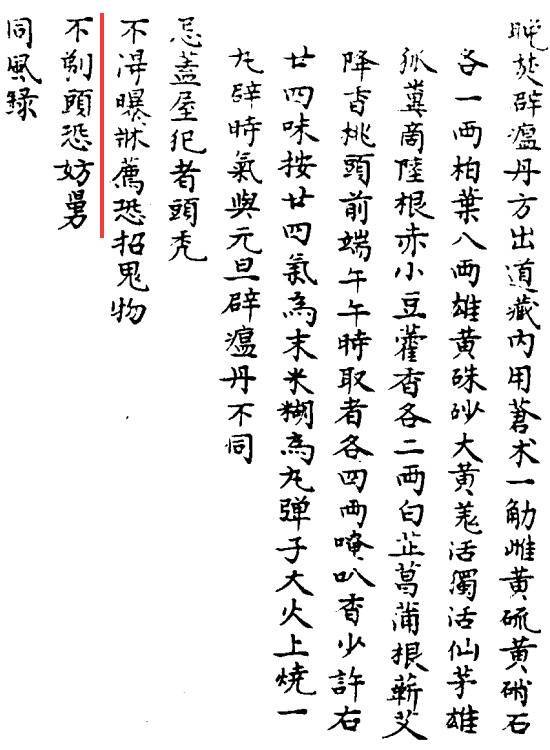 晚焚辟瘟丹方出道藏內用蒼术一觔雌黃硫黃硝石
各一两柏葉八两雄黃硃砂大黃羌活獨活仙茅雄
狐糞商陸根赤小豆藿香各二两白芷菖蒲根蘄艾
降香桃頭前端午午時取者各四两唵叭香少許右
廿四味按廿四氣為末米糊為丸弹子大火上燒一
丸辟時氣與元旦辟瘟丹不同
忌蓋屋犯者頭禿
不淂曝牀薦恐招鬼物
不剃頭恐妨舅
同風錄